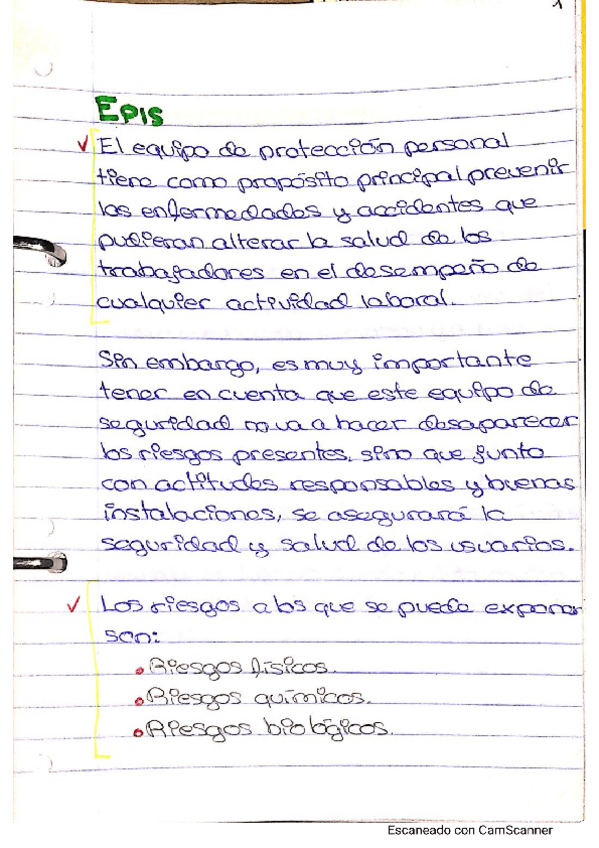 1
EPIS
✓ El equipo de protección personal
tiene como propósito principal prevenir
las enfermedades y accidentes que
pudieran alterar la salud de los
trabajadores en el desempeño de
cualquier actividad laboral.
Sin embargo, es muy importante
tener en cuenta que este equipo de
seguridad no va a hacer desaparecer
los riesgos presentes, sino que junto
con actitudes responsables y buenas
instalaciones, se asegurará la
seguridad y salud de los usuarios.
✓ Los riesgos a los que se puede exponer
son:
• Riesgos físicos.
• Riesgos químicos.
• Riesgos biológicos.
Escaneado con CamScanner